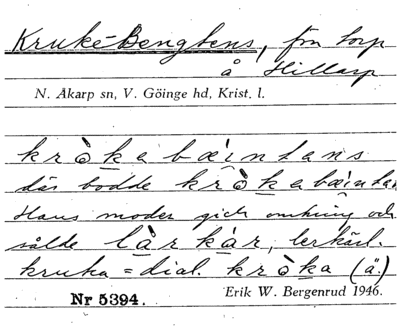 Kruke-Bengtens, fra torp
å Hillarp
N. Åkarp sn, V. Göinge hd, Krist. l.
kròkabæintans
där bodde kròkabæintan
Hans moder gick omkring och
sålde làrkàr, lerkärl.
kruka = dial. kròka (ä.)
Nr 5394. Erik W. Bergenrud 1946.